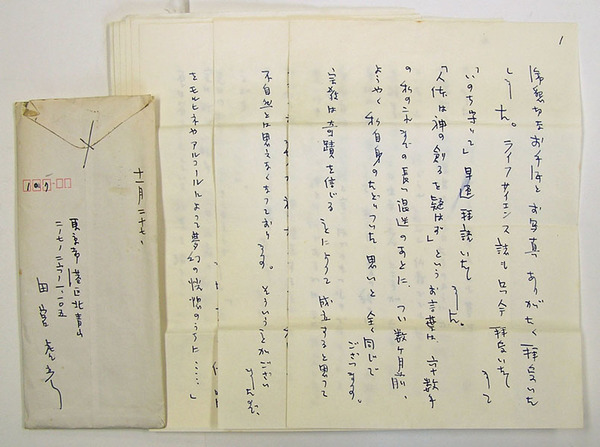 1
御懇切なお手紙とお写真、ありがたく拝受いた
しました。ライフサイエンス誌も只今拝受いたし
「いのち守って」早速拝読いたしました。
「人体は神の創るを疑はず」というお言葉は、六十数年
の私のこれまでの長い混迷のあとに、つい数ヶ月前、
ようやく私自身のたどりついた思いと全く同じで
ございます。
宗教は奇蹟を信じることによって成立すると思って
不自然とは思えなくなっております。そういうことがござい
ましたが、
をモルヒネやアルコールによって夢幻の恍惚のうちに……」
十一月二十七、
107
東京都港区北青山
二ノ七ノ二六ノ一一〇五
田宮虎彦